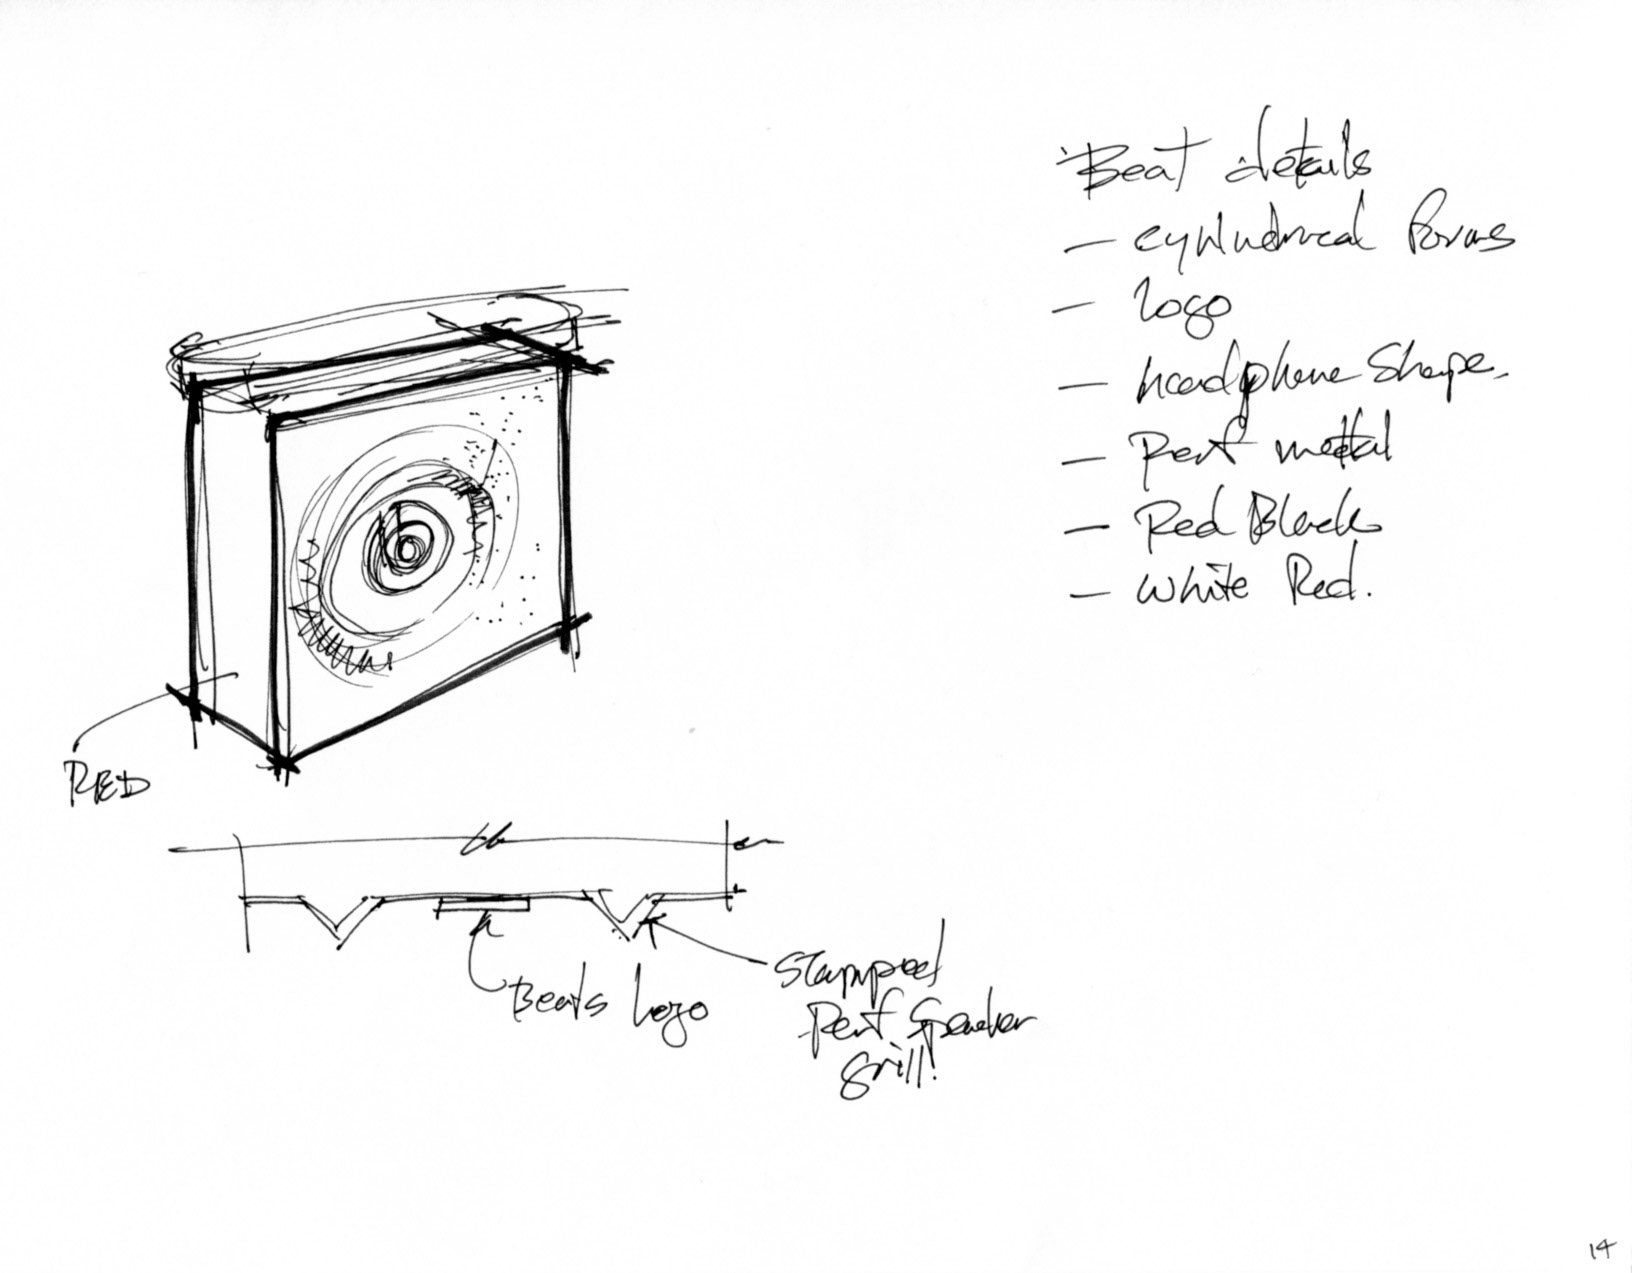 Beat details
– cylindrical forms
– logo
– headphone Shape.
– Perf metal
– Red Black
– White Red.
RED
Beats Logo
Stamped
Perf Speaker
Grill!
14